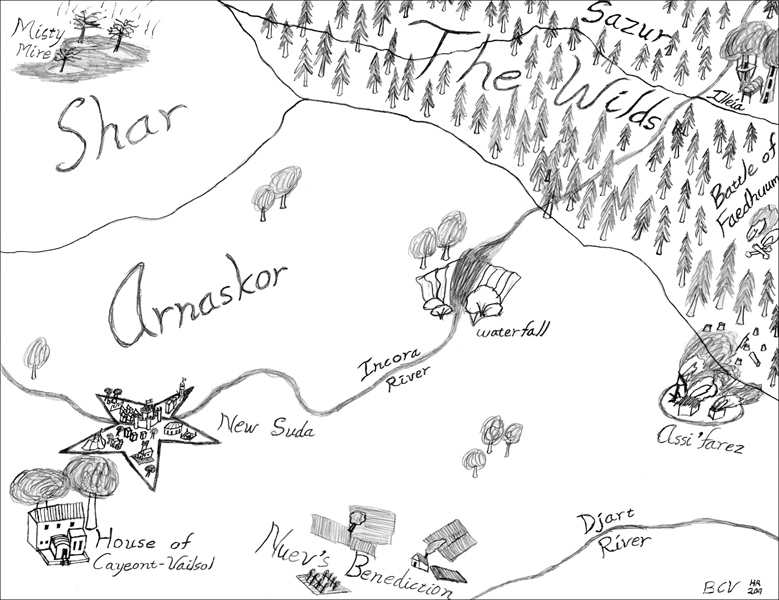 Misty
Mire
Sazur
The Wilds
Illeia
Shar
Battle of
Faedhuum
Arnaskor
waterfall
Incora
River
New Suda
Assi'farez
House of
Cayeont-Vailsol
Nuev's
Benediction
Djart
River
BCV